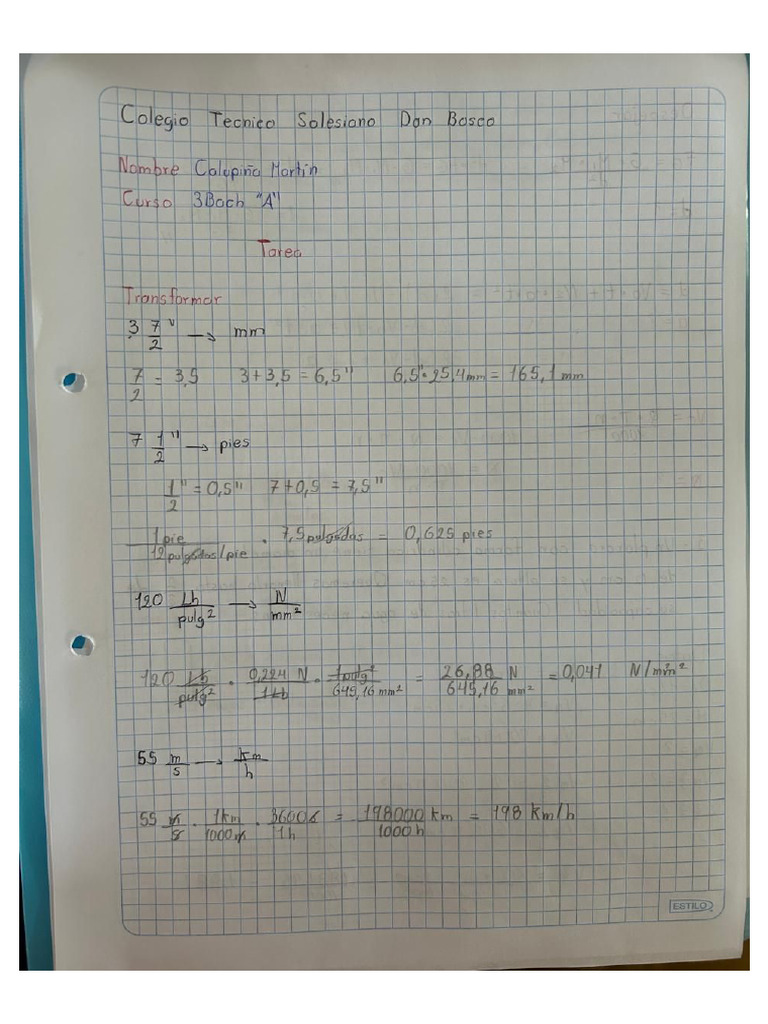 Colegio Tecnico Salesiano Don Bosco
Nombre Calupiña Martin
Curso 3Bach "A"
Tarea
Transformar
3 7/2" → mm
7/2 = 3,5 3+3,5 = 6,5" 6,5" • 25,4mm = 165,1 mm
7 1/2" → pies
1/2" = 0,5" 7+0,5 = 7,5"
1pie/12pulgadas/pie • 7,5pulgadas = 0,625 pies
120 Lb/pulg² → N/mm²
120 Lb/pulg² • 0,224 N/1Lb • 1pulg²/645,16 mm² = 26,88 N/645,16 mm² = 0,041 N/mm²
55 m/s → km/h
55 m/s • 1km/1000m • 3600s/1h = 198000 km/1000h = 198 km/h
ESTILO